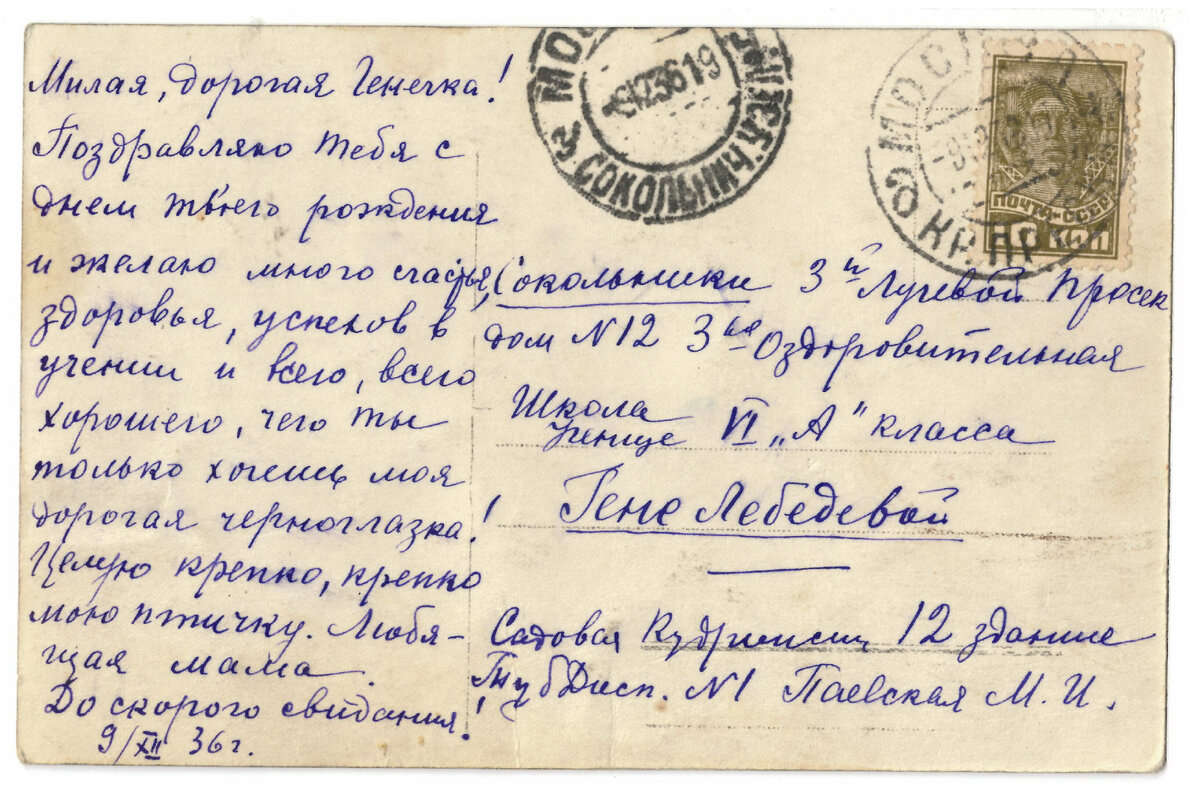 Милая, дорогая Генечка!
Поздравляю тебя с
днем твоего рождения
и желаю много счастья,
здоровья, успехов в
учении и всего, всего
хорошего, чего ты
только хочешь моя
дорогая черноглазка!
Целую крепко, крепко
мою птичку. Любя-
щая мама.
До скорого свидания!
9/XII 36 г.
СОКОЛЬНИ
МОСКВА
КР. ПР
ПОЧТА-СССР
10 КОП
Сокольники 3й Лучевой Просек
дом N12 3ья Оздоровительная
Школа
Ученице VI „А" класса
Гене Лебедевой
Садовая Кудринск 12 здание
Туб Дисп. N1 Паевская М. И.